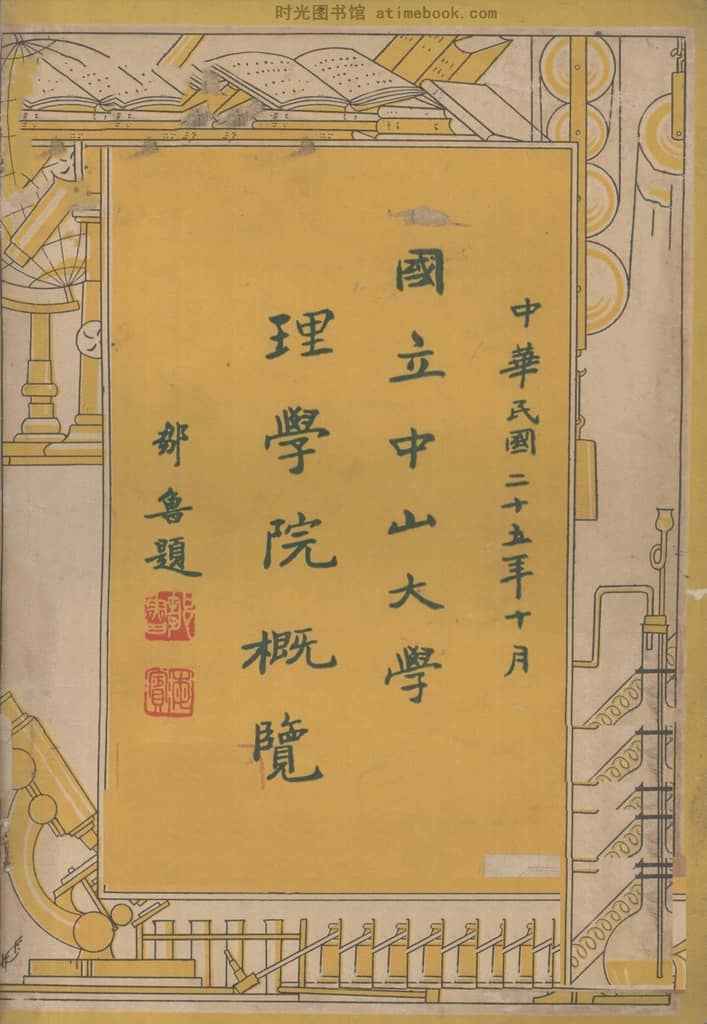 时光图书馆 atimebook.com
中華民國二十五年十月
國立中山大學
理學院概覽
鄒魯題
鄒魯
海濱